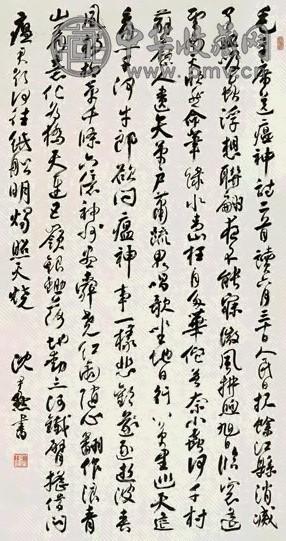 毛主席送瘟神詩二首讀六月三十日人民日報餘江縣消滅
了血吸虫浮想聯翩夜不能寐微風拂煦旭日臨窗遥
望南天欣然命筆綠水青山枉自多華佗無奈小蟲何千村
薜荔人遺矢萬户蕭疏鬼唱歌坐地日行八萬里巡天遥
看一千河牛郎欲問瘟神事一樣悲歡逐逝波春
風楊柳萬千條六億神州盡舜堯紅雨隨心翻作浪青
山着意化為橋天連五嶺銀鋤落地動三河鐵臂搖借問
瘟君欲何往紙船明燭照天燒
沈尹默書
中华收藏网